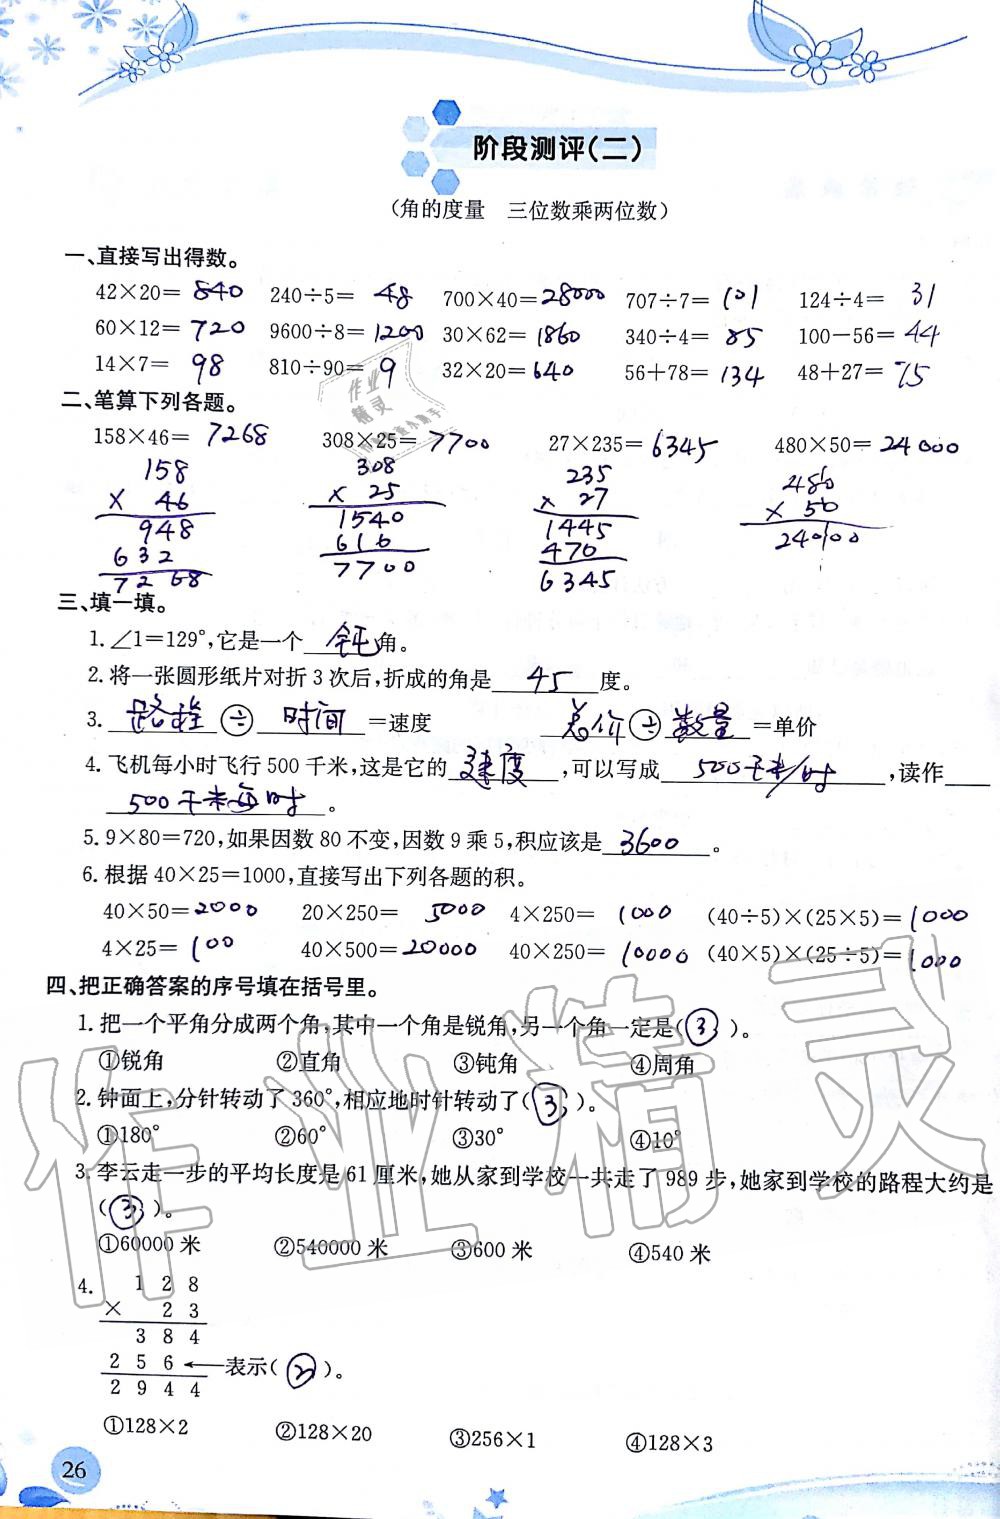 阶段测评(二)
(角的度量 三位数乘两位数)
一、直接写出得数。
42×20= 840 240÷5= 48 700×40= 28000 707÷7= 101 124÷4= 31
60×12= 720 9600÷8= 1200 30×62= 1860 340÷4= 85 100-56= 44
14×7= 98 810÷90= 9 32×20= 640 56+78= 134 48+27= 75
二、笔算下列各题。
158×46= 7268 308×25= 7700 27×235= 6345 480×50= 24000
158 308 235 480
× 46 × 25 × 27 × 50
948 1540 1445 24000
632 616 470
7268 7700 6345
三、填一填。
1.∠1=129°,它是一个 钝 角。
2.将一张圆形纸片对折3次后,折成的角是 45 度。
3. 路程 ÷ 时间 =速度 总价 ÷ 数量 =单价
4.飞机每小时飞行500千米,这是它的 速度 ,可以写成 500千米/时 ,读作
500千米每时 。
5.9×80=720,如果因数80不变,因数9乘5,积应该是 3600 。
6.根据40×25=1000,直接写出下列各题的积。
40×50= 2000 20×250= 5000 4×250= 1000 (40÷5)×(25×5)= 1000
4×25= 100 40×500= 20000 40×250= 10000 (40×5)×(25÷5)= 1000
四、把正确答案的序号填在括号里。
1.把一个平角分成两个角,其中一个角是锐角,另一个角一定是( ③ )。
①锐角 ②直角 ③钝角 ④周角
2.钟面上,分针转动了360°,相应地时针转动了( ③ )。
①180° ②60° ③30° ④10°
3.李云走一步的平均长度是61厘米,她从家到学校一共走了989步,她家到学校的路程大约是
( ③ )。
①60000米 ②540000米 ③600米 ④540米
4. 1 2 8
× 2 3
3 8 4
2 5 6 ←表示( ② )。
2 9 4 4
①128×2 ②128×20 ③256×1 ④128×3
26
作业精灵
作业
精灵